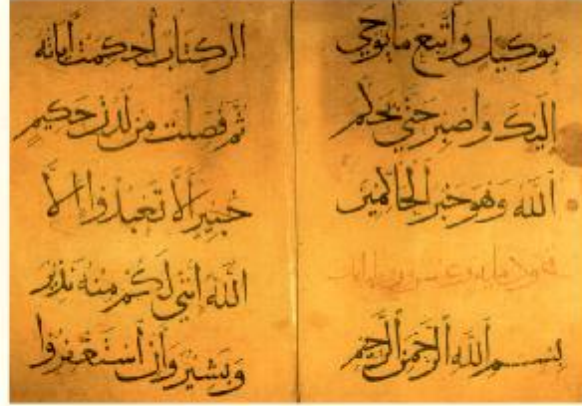 بوكيل وَاتبع ما يوحي
إليك واصبر حتي يحكم
الله وهو خير الحاكمين
بسم الله الرحمن الرحيم
الر كتاب أحكمت أياته
ثم فصلت من لدن حكيم
خبير ألّا تعبدوا إلّا
الله أنني لكم منه نذير
وبشير وأن أستغفروا